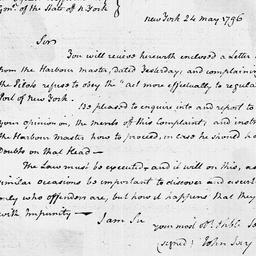 of the State of N York
New York 24 May 1796
Sir
You will recieve herewith enclosed a Letter
from the Harbour Master, dated Yesterday, and complaining
the Pilots refuse to obey the "act more effectually to regulate
Port of New York.
Be pleased to enquire into and report to
your opinion on, the merits of this Complaint; and instr
the Harbour Master how to proceed, in case he should ha
Doubts on that Head —
The Law must be executed, and it will on this, as
similar occasions be important to discover and ascert
only who offenders are, but how it happens that they
with Impunity —
I am Sir
your most Obt. Hble Se
(signed) John Jay